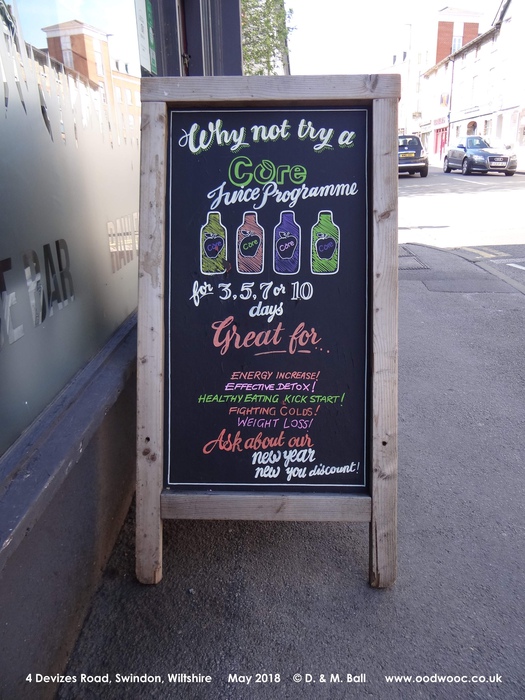 Why not try a
Core
Juice Programme
Core
Core
Core
Core
for 3, 5, 7 or 10
days
Great for...
ENERGY INCREASE!
EFFECTIVE DETOX!
HEALTHY EATING KICK START!
FIGHTING COLDS!
WEIGHT LOSS!
Ask about our
new year
new you discount!
BAR
4 Devizes Road, Swindon, Wiltshire May 2018 © D. & M. Ball www.oodwooc.co.uk